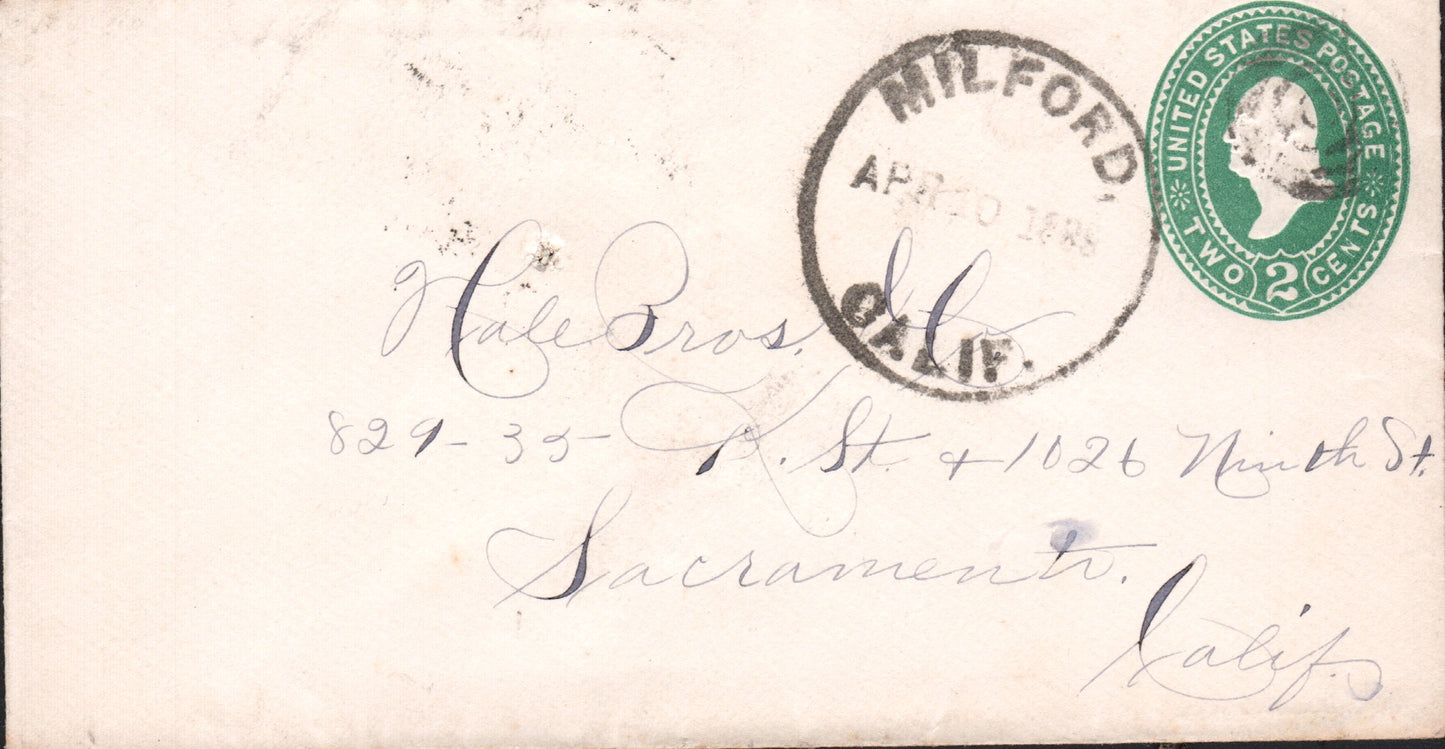 MILFORD,
APR 20 188
CALIF.
UNITED STATES POSTAGE
TWO 2 CENTS
Hale Bros. & Co
829-35 K. St. & 1026 Ninth St.
Sacramento.
Calif.